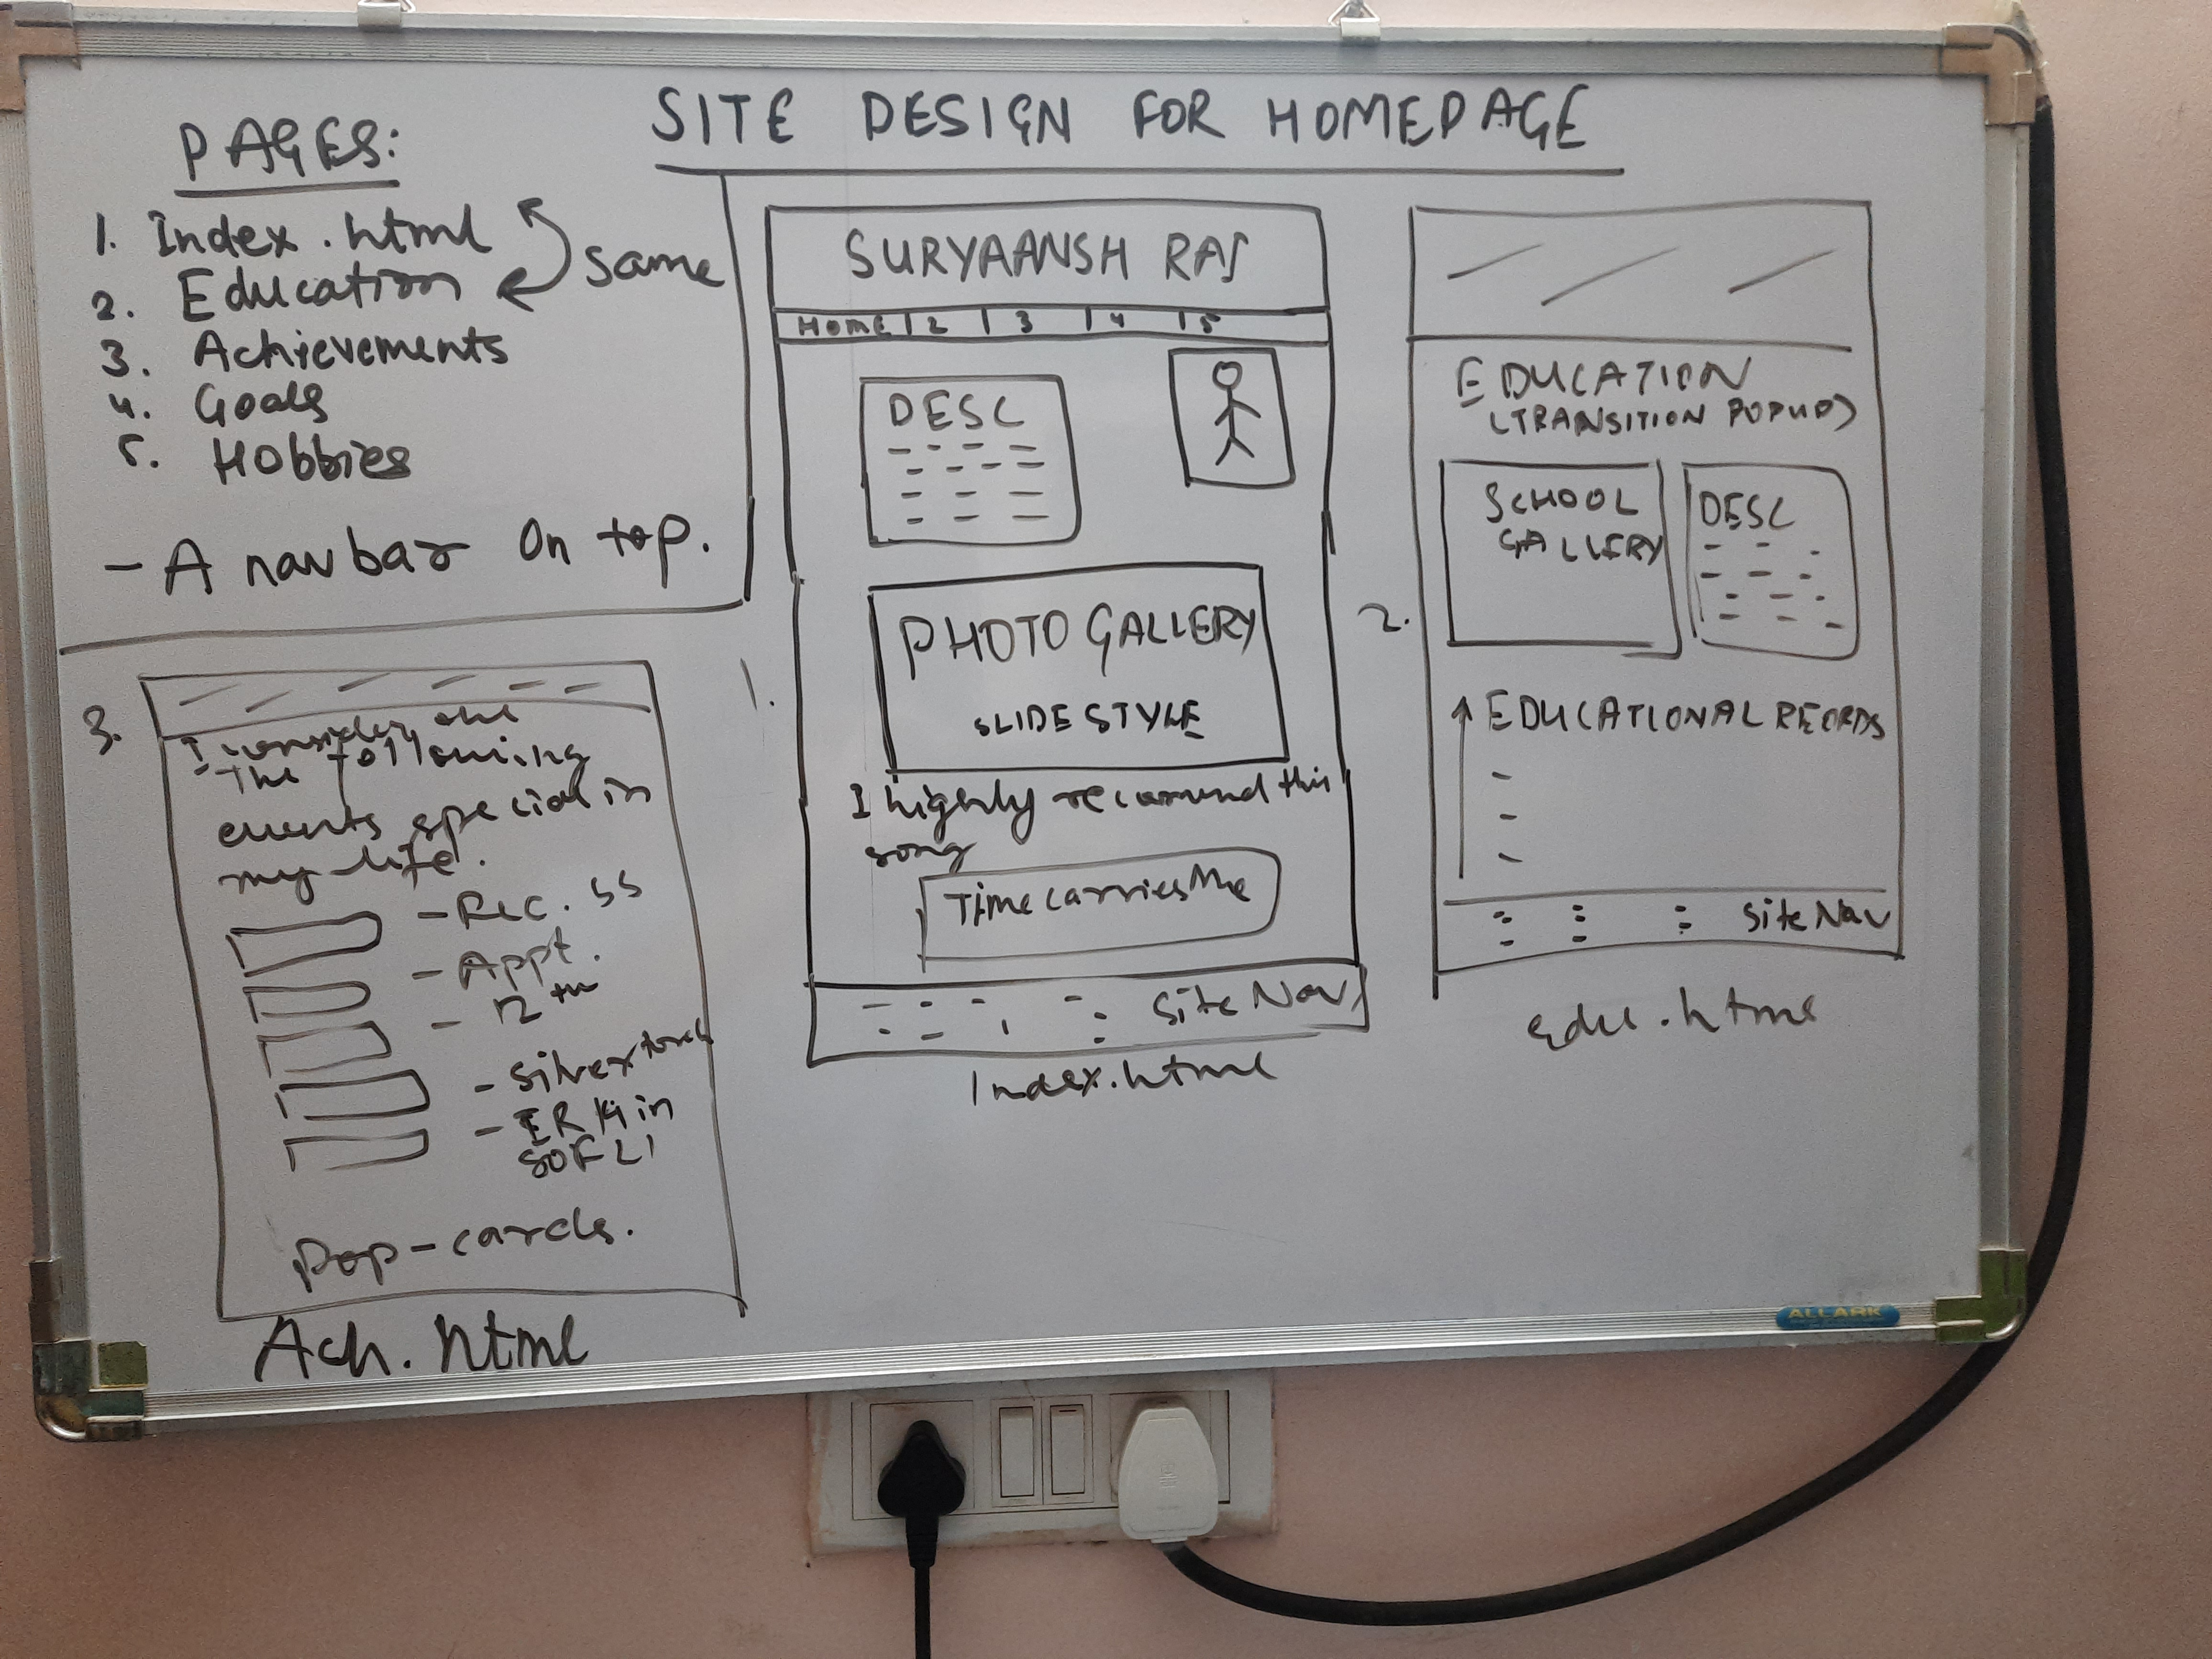 SITE DESIGN FOR HOMEPAGE
PAGES:
1. Index.html
2. Education
same
3. Achievements
4. Goals
5. Hobbies
- A navbar on top.
1.
SURYAANSH RAJ
HOME | 2 | 3 | 4 | 5
DESC
PHOTO GALLERY
SLIDE STYLE
I highly recommend this
song
Time carries Me
Site Nav
Index.html
2.
EDUCATION
(TRANSITION POPUP)
SCHOOL
GALLERY
DESC
EDUCATIONAL RECORDS
Site Nav
edu.html
3.
I consider the
the following
events special in
my life.
- Rec. SS
- Appt.
- 12th
- Silver
- IR 14 in
SOF L1
Pop-cards.
Ach.html
ALLARK